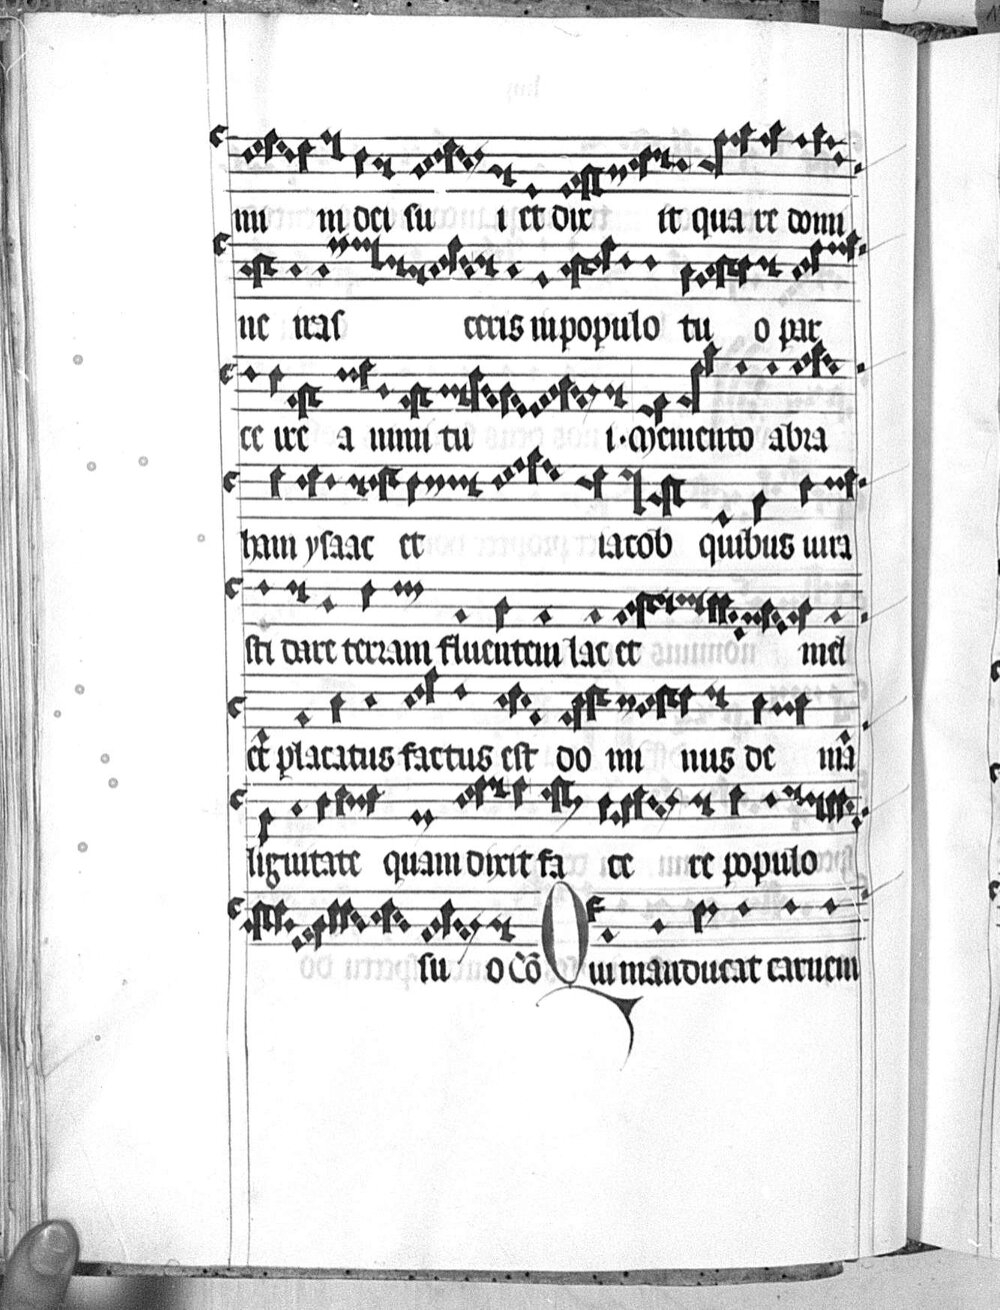 mi ni dei su i et dix it qua re domi
ne iras ceris in populo tu o par
ce ire a nimi tu i. Memento abra
ham ysaac et iacob quibus iura
sti dare terram fluentem lac et mel
et placatus factus est do mi nus de ma
lignitate quam dixit fa ce re populo
su o Cõ Qui manducat carnem